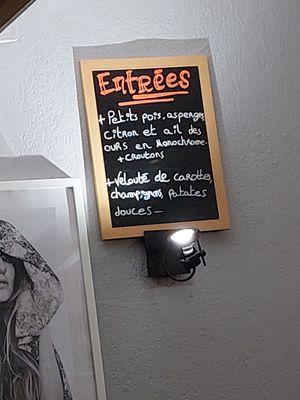 Entrées
+ Petits pois, asperges,
citron et ail des
ours en monochrome.
+ croutons
+ Velouté de carottes,
champignons, patates
douces _